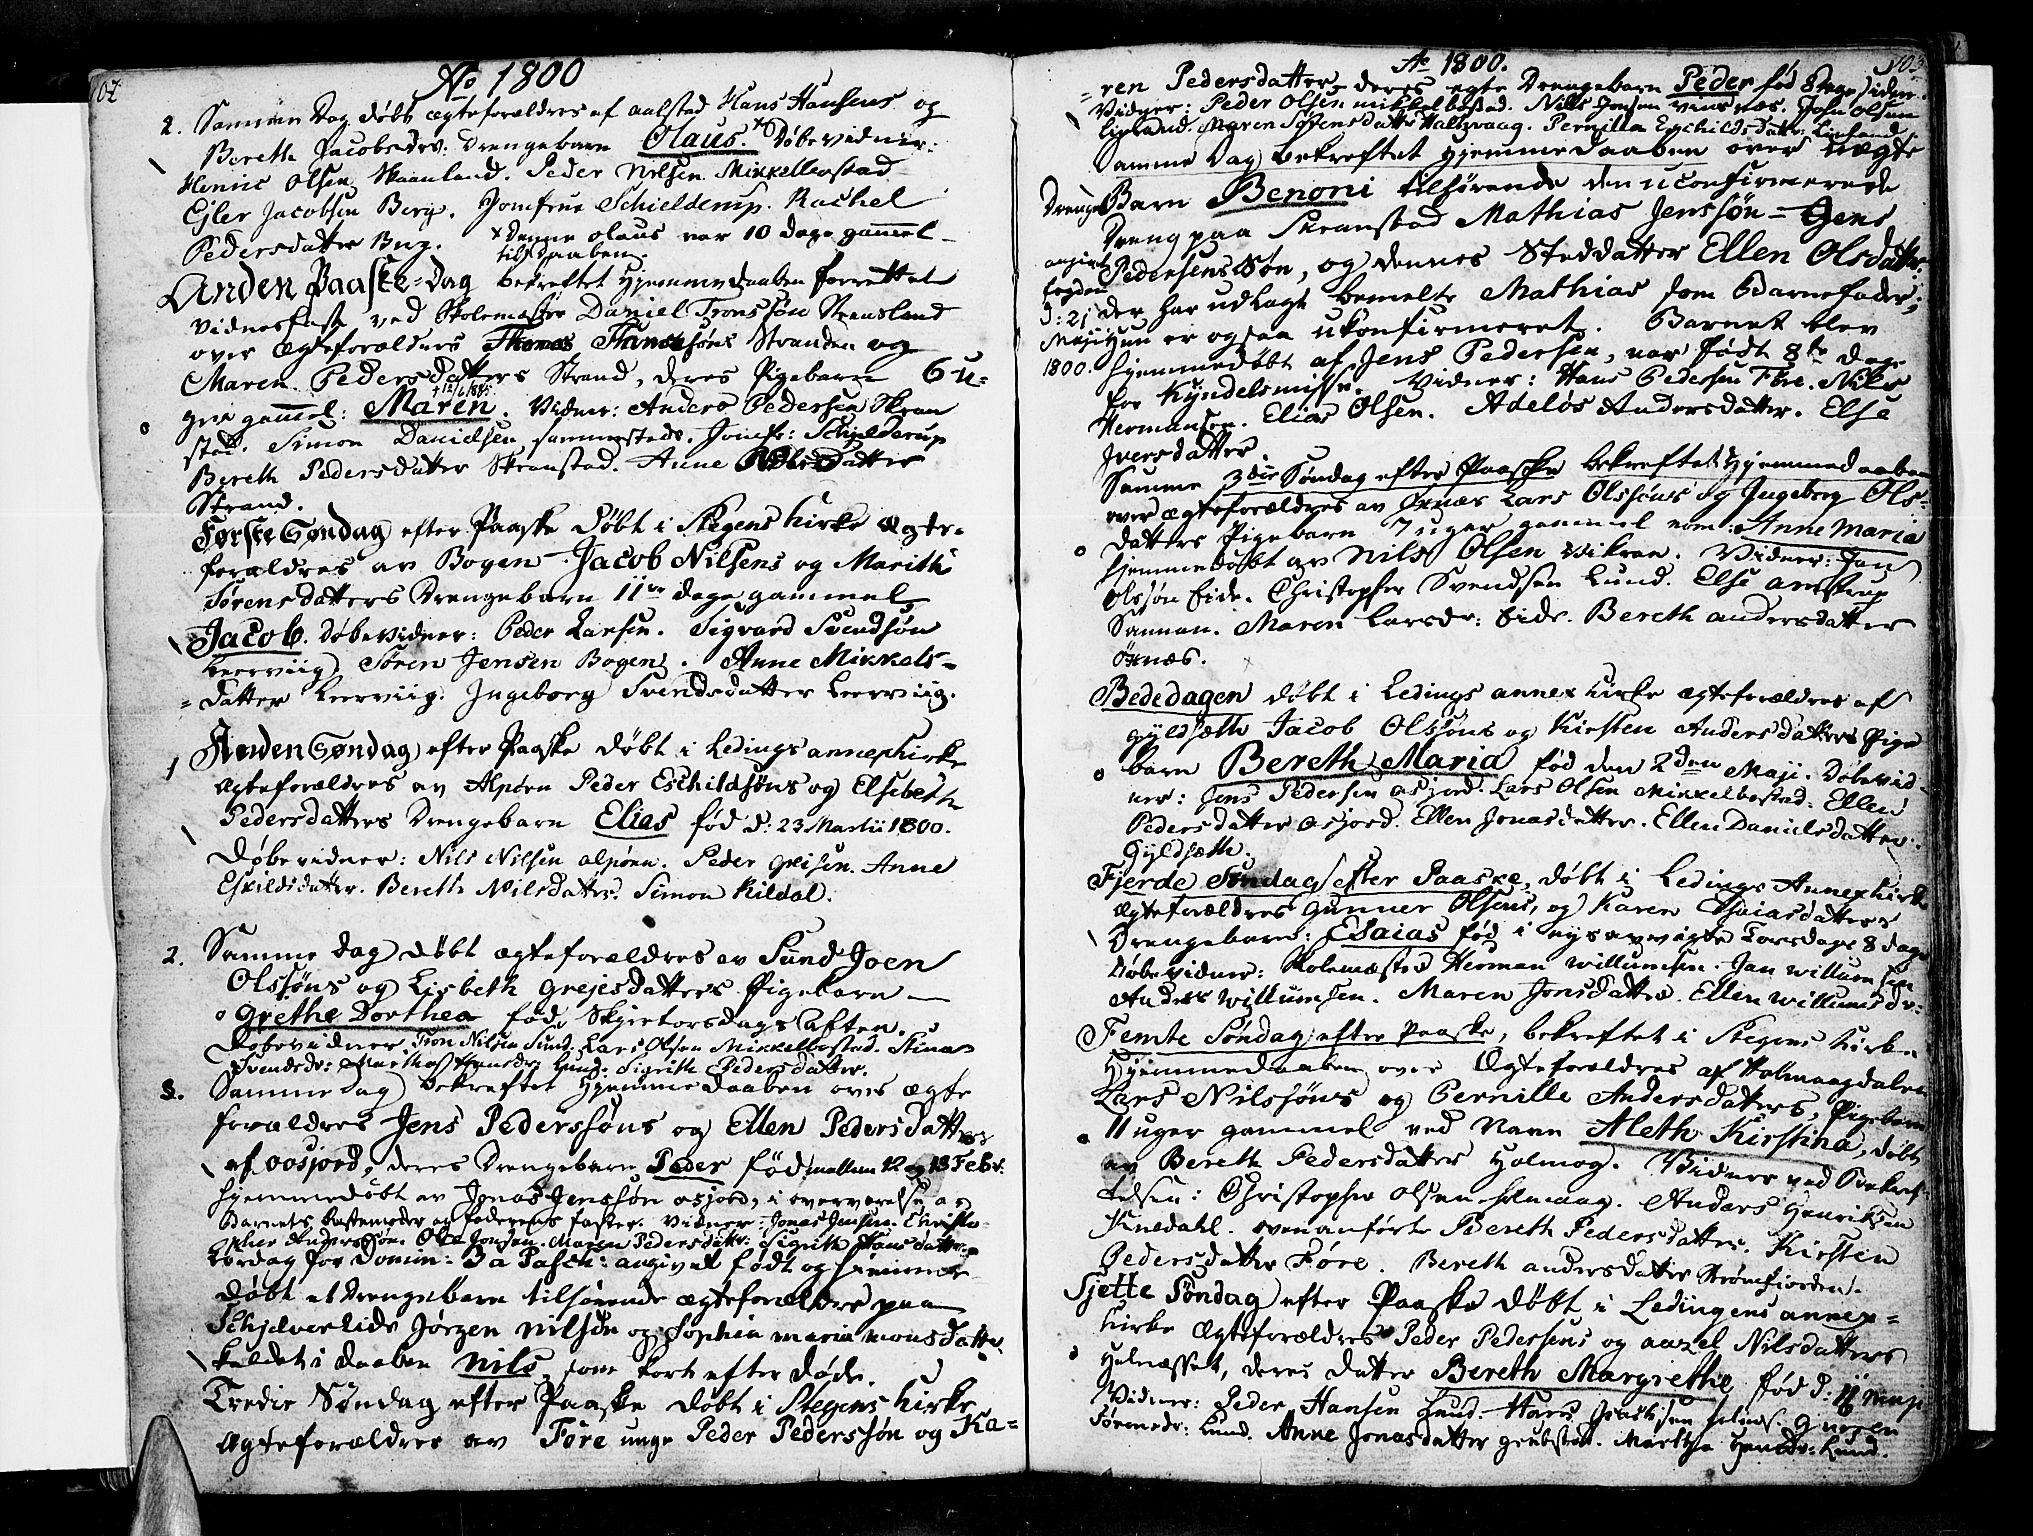 102
Ao 1800
2. Samme Dag døbt ægteforældres af aalstad Hans Hansens og
Bereth Jacobsdrs: Drengebarn Olaus. x Døbevidner:
Henric Olsen Skaanland. Peder Nilsen Mikkelbostad
Ejler Jacobsen Berg. Jomfrue Schielderup. Rachel
Pedersdatter Bug. x denne Olaus var 10 dage gammel
til daaben.
Anden Paaske-Dag bekreftet Hjemmedaaben forrettet
vidnesfast ved Skolemester Daniel Tronssøn Skensland
over Ægteforælders Thomas Thomessøns Stranden og
Maren Pedersdatters Strand, deres Pigebarn 6 u-
ger gammel: Maren. Vidner: Anders Pedersen Skran
stad. Simon Danielsen sammesteds. Jomfr: Schjelderup
Bereth Pedersdatter Skranstad. Anne Pedersdatter
Strand.
Første Søndag efter Paaske Døbt i Stegens Kirke Ægte-
forældres av Bogen Jacob Nilsens og Marith
Sørensdatters Drengebarn 11 dage gammel
Jacob. Døbevidner: Peder Larsen. Sigvard Svendsøn
Leerviig Søren Jensen Bogen. Anne Mikkels-
datter Leerviig. Ingeborg Svendsdatter Leerviig.
1 Anden Søndag efter Paaske døbt i Ledings annex Kirke
Ægteforældres av Alpøen Peder Eschildsøns og Elsebeth
Pedersdatters Drengebarn Elias fød d: 23 Martii 1800.
Døbevidner: Nils Nilsen Alpøen. Peder Grisen. Anne
Eskildsdatter. Bereth Nilsdatter. Simon Kildal.
2. Samme dag døbt ægteforældres av Sund Joen
Olssøns og Lisbeth Grejesdatters Pigebarn
Grethe Dorthea fød Skjertorsdags aften.
Døbevidner Tron Nilsen Sund. Lars Olsen Mikkelbostad. Stina
Svendsdr: Martha Hansdr: Lund. Sigrith Pedersdatter.
3. Samme dag bekreftet Hjemmedaaben over ægte
forældres Jens Pederssøns og Ellen Pedersdatters
af oosjord, deres Drengebarn Peder fød mellem 12 og 13 Febr:
Hjemmedøbt av Jonas Jenssøn osjord, i overværelse av
Barnets bestemoder og faderens faster. Vidner: Jonas Jensen. Christo-
pher Anderssøn. Ole Jonsen. Maren Pedersdatter: Sigrith Hansdatter
Lørdag for Domin: 3a Pasch: angivet født og hjemme
døbt et Drengebarn tilhørende ægteforældre paa
Schjelverlids Jørgen Nilsøn og Sophia Maria Monsdatter
kaldet i daaben Nils, som kort efter døde.
Tredie Søndag efter Paaske døbt i Stegens Kirke
Ægteforældres av Føre unge Peder Pederssøn og Ka=
103
Ao 1800.
=ren Pedersdatter deres egte Drengebarn Peder fød 8 Dage siden.
Vidner: Peder Olsen Mikkelbostad. Nills Jensen Vinsnæs. John Olsen
Maren Sørensdatter Haltvaag. Pernilla Eschildsdatter
Samme Dag bekreftet Hjemmedaaben over uægte
Drenge Barn Benoni tilhørende den uconfirmerede
Dreng paa Skranstad Mathias Jenssøn - Jens
Pedersens Søn, og dennes Steddatter Ellen Olsdatter,
der har udlagt bemelte Mathias som Barnefader;
Hun er ogsaa ukonfirmeret. Barnet blev
Hjemmedøbt af Jens Pedersen, var født 8te Dage
for Kyndelsmisse. Vidner: Hans Pedersen Føre. Niels
Hermansen. Elias Olsen. AdelØs Andersdatter. Else
Iversdatter.
angivet
d: 21
Maji
1800.
Samme 3die Søndag efter Paaske bekreftet Hjemmedaaben
over ægteforældres av Øxnæs Lars Olssøns og Ingeborg Ols-
datters Pigebarn 7 uger gammel nom: Anne Maria
Hjemmedøbt av Nils Olsen Vikran. Vidner: Jan
Olssøn Eide. Christopher Svendsen Lund. Else
Sannan. Maren Larsdr: Eide. Bereth Andersdatter
Øxnæs.
Bededagen døbt i Ledings annex Kirke Ægteforældres af
Gyldsæth Jacob Olssøns og Kirsten Andersdatters Pige
barn Bereth Maria fød den 2den Maji. Døbevid-
ner: Jens Pedersen Osjord. Lars Olsen Mikkelbostad. Ellen
Pedersdatter Osjord. Ellen Jonasdatter. Ellen Danielsdatter.
Gyldsæth.
Fierde Søndag efter Paaske, døbt i Ledings Annex Kirke
Ægteforældres Gunner Olsens, og Karen Esaiasdatters
Drengebarn: Esaias fød i Torsdags 8 dage
Døbevidner: Skolemæster Herman Willumsen. Jan Willumsen
Anders Willumsen. Maren Jonsdatter. Ellen Willumsdr:
Femte Søndag efter Paaske, bekreftet i Stegens Kirke
Hjemmedaaben over Ægteforældres af Holmaagdalen
Lars Nilssøns og Pernille Andersdatters, Pigebarn
11 uger gammel ved Navn Aleth Kirstina, døbt
av Bereth Pedersdatter Holmog. Vidner ved Bekref-
telsen: Christopher Olsen Holmaag. Anders Henriksen
Knedahl. ovenanførte Bereth Pedersdatter. Kirsten
Pedersdatter Føre. Bereth Andersdatter Strømfiorden.
Sjette Søndag efter Paaske døbt i Ledingens annex-
Kirke Ægteforældres Peder Pedersens og Aazel Nilsdatters
Holnæsset, deres datter Bereth Margrethe fød d: Maji
Vidner: Peder Hansen Lund. Hans
Lund. Anne Jonasdatter Martha Hansdr: Lund.